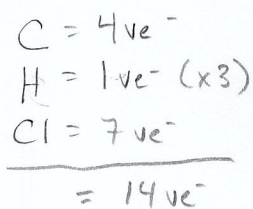 C = 4 ve⁻
H = 1 ve⁻ (x3)
Cl = 7 ve⁻
= 14 ve⁻